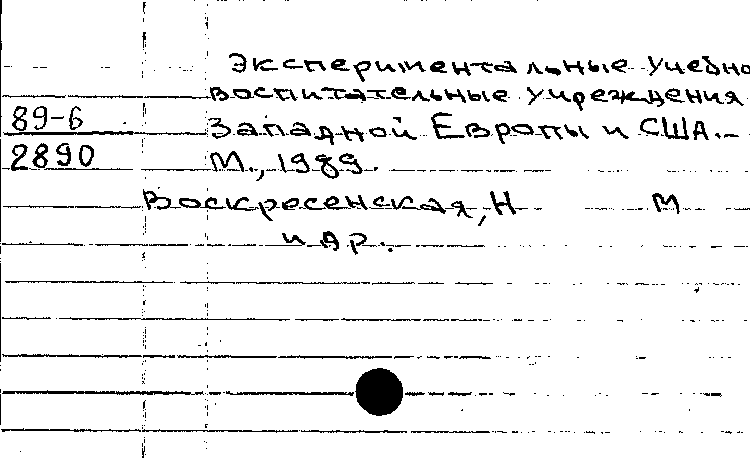 Экспериментальные учебно
воспитательные учреждения
89-6
Западной Европы и США.-
2890
М., 1989.
Воскресенская, Н М
и др.